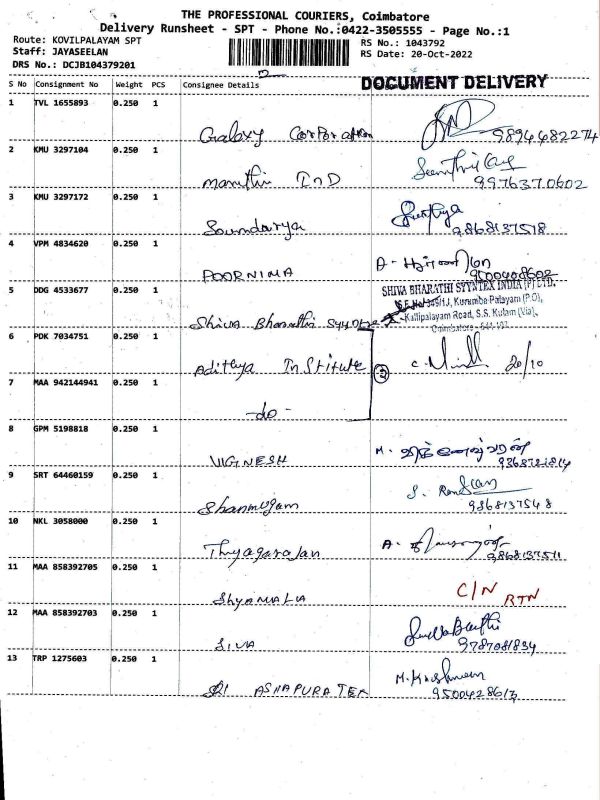 THE PROFESSIONAL COURIERS, Coimbatore
Delivery Runsheet - SPT - Phone No.:0422-3505555 - Page No.:1
Route: KOVILPALAYAM SPT
Staff: JAYASEELAN
DRS No.: DCJB104379201
RS No.: 1043792
RS Date: 20-Oct-2022
DOCUMENT DELIVERY
S No Consignment No Weight PCS Consignee Details
1 TVL 1655893 0.250 1
Galaxy Corporation 9894682274
2 KMU 3297104 0.250 1
Maruthi IND 9976370602
3 KMU 3297172 0.250 1
Soundarya 9868137518
4 VPM 4834620 0.250 1
POORNIMA A- 9500408602
5 DDG 4533677 0.250 1
Shiva Bharathi Syyntex
SHIVA BHARATHI SYYNTEX INDIA (P) LTD.
S.F.No. 349/1J, Kurumba Palayam (P.O),
Kallipalayam Road, S.S. Kulam (Via),
Coimbatore - 641 107.
6 PDK 7034751 0.250 1
Adithya Institute 2 20/10
7 MAA 942144941 0.250 1
-do-
8 GPM 5198818 0.250 1
VIGNESH M. விக்னேஷ்வரன்
9 SRT 64460159 0.250 1
Shanmugam S. 9868137548
10 NKL 3058000 0.250 1
Thyagarajan A. 9868137511
11 MAA 858392705 0.250 1
Shyamala C/N RTN
12 MAA 858392703 0.250 1
SIVA 9787081834
13 TRP 1275603 0.250 1
SRI ASHAPURA TEX M. 9500428613